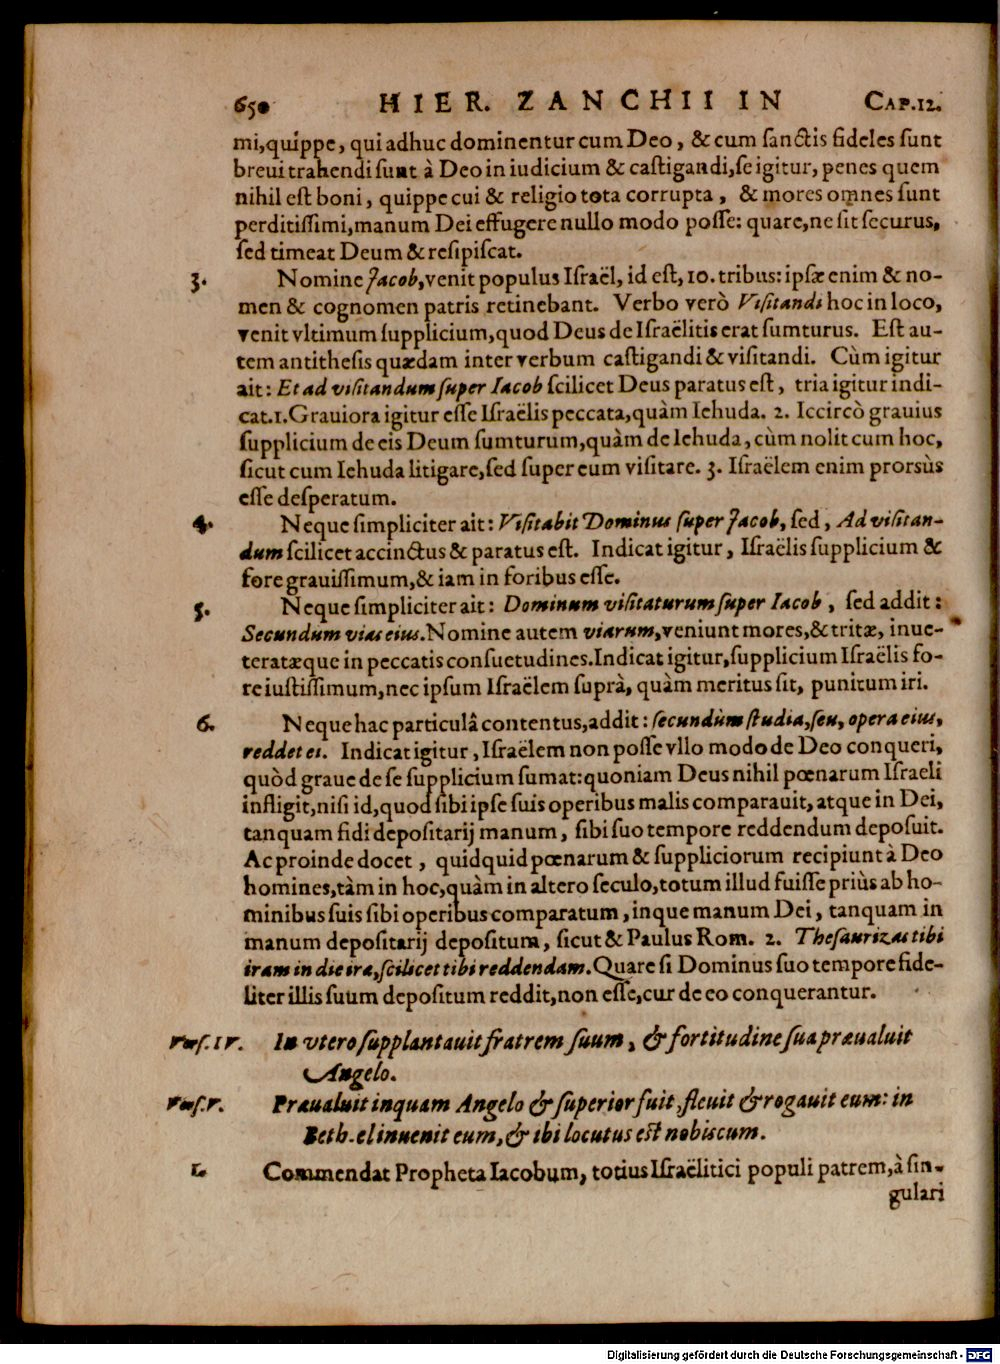 650 HIER. ZANCHII IN CAP.12.
mi,quippe, qui adhuc dominentur cum Deo, & cum sanctis fideles sunt
breui trahendi sunt à Deo in iudicium & castigandi,se igitur, penes quem
nihil est boni, quippe cui & religio tota corrupta, & mores omnes sunt
perditissimi,manum Dei effugere nullo modo posse: quare,ne sit securus,
sed timeat Deum & resipiscat.
3. Nomine Jacob,venit populus Israël, id est, 10. tribus: ipsæ enim & no-
men & cognomen patris retinebant. Verbo verò Visitandi hoc in loco,
venit vltimum supplicium,quod Deus de Israëlitis erat sumturus. Est au-
tem antithesis quædam inter verbum castigandi & visitandi. Cùm igitur
ait: Et ad visitandum super Iacob scilicet Deus paratus est, tria igitur indi-
cat.1.Grauiora igitur esse Israëlis peccata,quàm Iehuda. 2. Iccircò grauius
supplicium de eis Deum sumturum,quàm de Iehuda, cùm nolit cum hoc,
sicut cum Iehuda litigare,sed super eum visitare. 3. Israëlem enim prorsùs
esse desperatum.
4. Neque simpliciter ait: Visitabit Dominus super Jacob, sed, Ad visitan-
dum scilicet accinctus & paratus est. Indicat igitur, Israëlis supplicium &
fore grauissimum,& iam in foribus esse.
5. Neque simpliciter ait: Dominum visitaturum super Iacob, sed addit:
Secundum vias eius.Nomine autem viarum,veniunt mores,& tritæ, inue-
teratæque in peccatis consuetudines.Indicat igitur,supplicium Israëlis fo-
re iustissimum,nec ipsum Israëlem suprà, quàm meritus sit, punitum iri.
6. Neque hac particulâ contentus,addit: secundùm studia,seu, opera eius,
reddet ei. Indicat igitur, Israëlem non posse vllo modo de Deo conqueri,
quòd graue de se supplicium sumat:quoniam Deus nihil pœnarum Israeli
infligit,nisi id,quod sibi ipse suis operibus malis comparauit, atque in Dei,
tanquam fidi depositarij manum, sibi suo tempore reddendum deposuit.
Ac proinde docet, quidquid pœnarum & suppliciorum recipiunt à Deo
homines,tàm in hoc,quàm in altero seculo,totum illud fuisse priùs ab ho-
minibus suis sibi operibus comparatum, inque manum Dei, tanquam in
manum depositarij depositum, sicut & Paulus Rom. 2. Thesaurizas tibi
iram in die ira,scilicet tibi reddendam.Quare si Dominus suo tempore fide-
liter illis suum depositum reddit,non esse,cur de eo conquerantur.
In vtero supplantauit fratrem suum, & fortitudine sua præualuit
Angelo.
Præualuit inquam Angelo & superior fuit,fleuit & rogauit eum: in
Beth-el inuenit eum, & ibi locutus est nobiscum.
Commendat Propheta Iacobum, totius Israëlitici populi patrem,à sin-
gulari
Digitalisierung gefördert durch die Deutsche Forschungsgemeinschaft - DFG